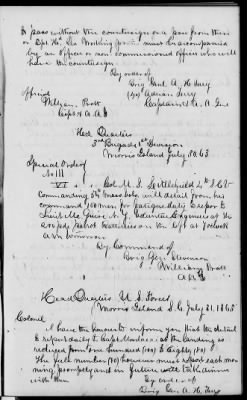 to pass without the countersign or a pass from these
or Dpt Hd Qrs Working parties must be accompanied
by an officer or non commissioned officer who will
have the countersign
By order of
Brig Genl A. H. Terry
(sd) Adrian Terry
Official
Captain & A. A. Gen
William
Capt & A A
Head Quarters
3rd Brigade 1st Division
Morris Island July 30 63
Special Orders
No 111
VI. Col. M. S. Littlefield 4th S.C.V
commanding 54th Mass Vols will detail from his
command 100 men for fatigue duty & report to
Lieut N. Y. Volunteer Engineers at the
batteries on the left at 7 o'clock
A.M. tomorrow
By Command of
Brig Gen Stevenson
William
A A
Head Quarters U. S. Forces
Morris Island S. C. July 31, 1863
Colonel
I have the honor to inform you that the detail
to report daily to Capt at the landing is
reduced from one hundred (100) to Eighty (80)
The full number (80) however must report each mor
ning promptly and in future will take dinner
with them
By order of
Brig Gen A. H. Terry